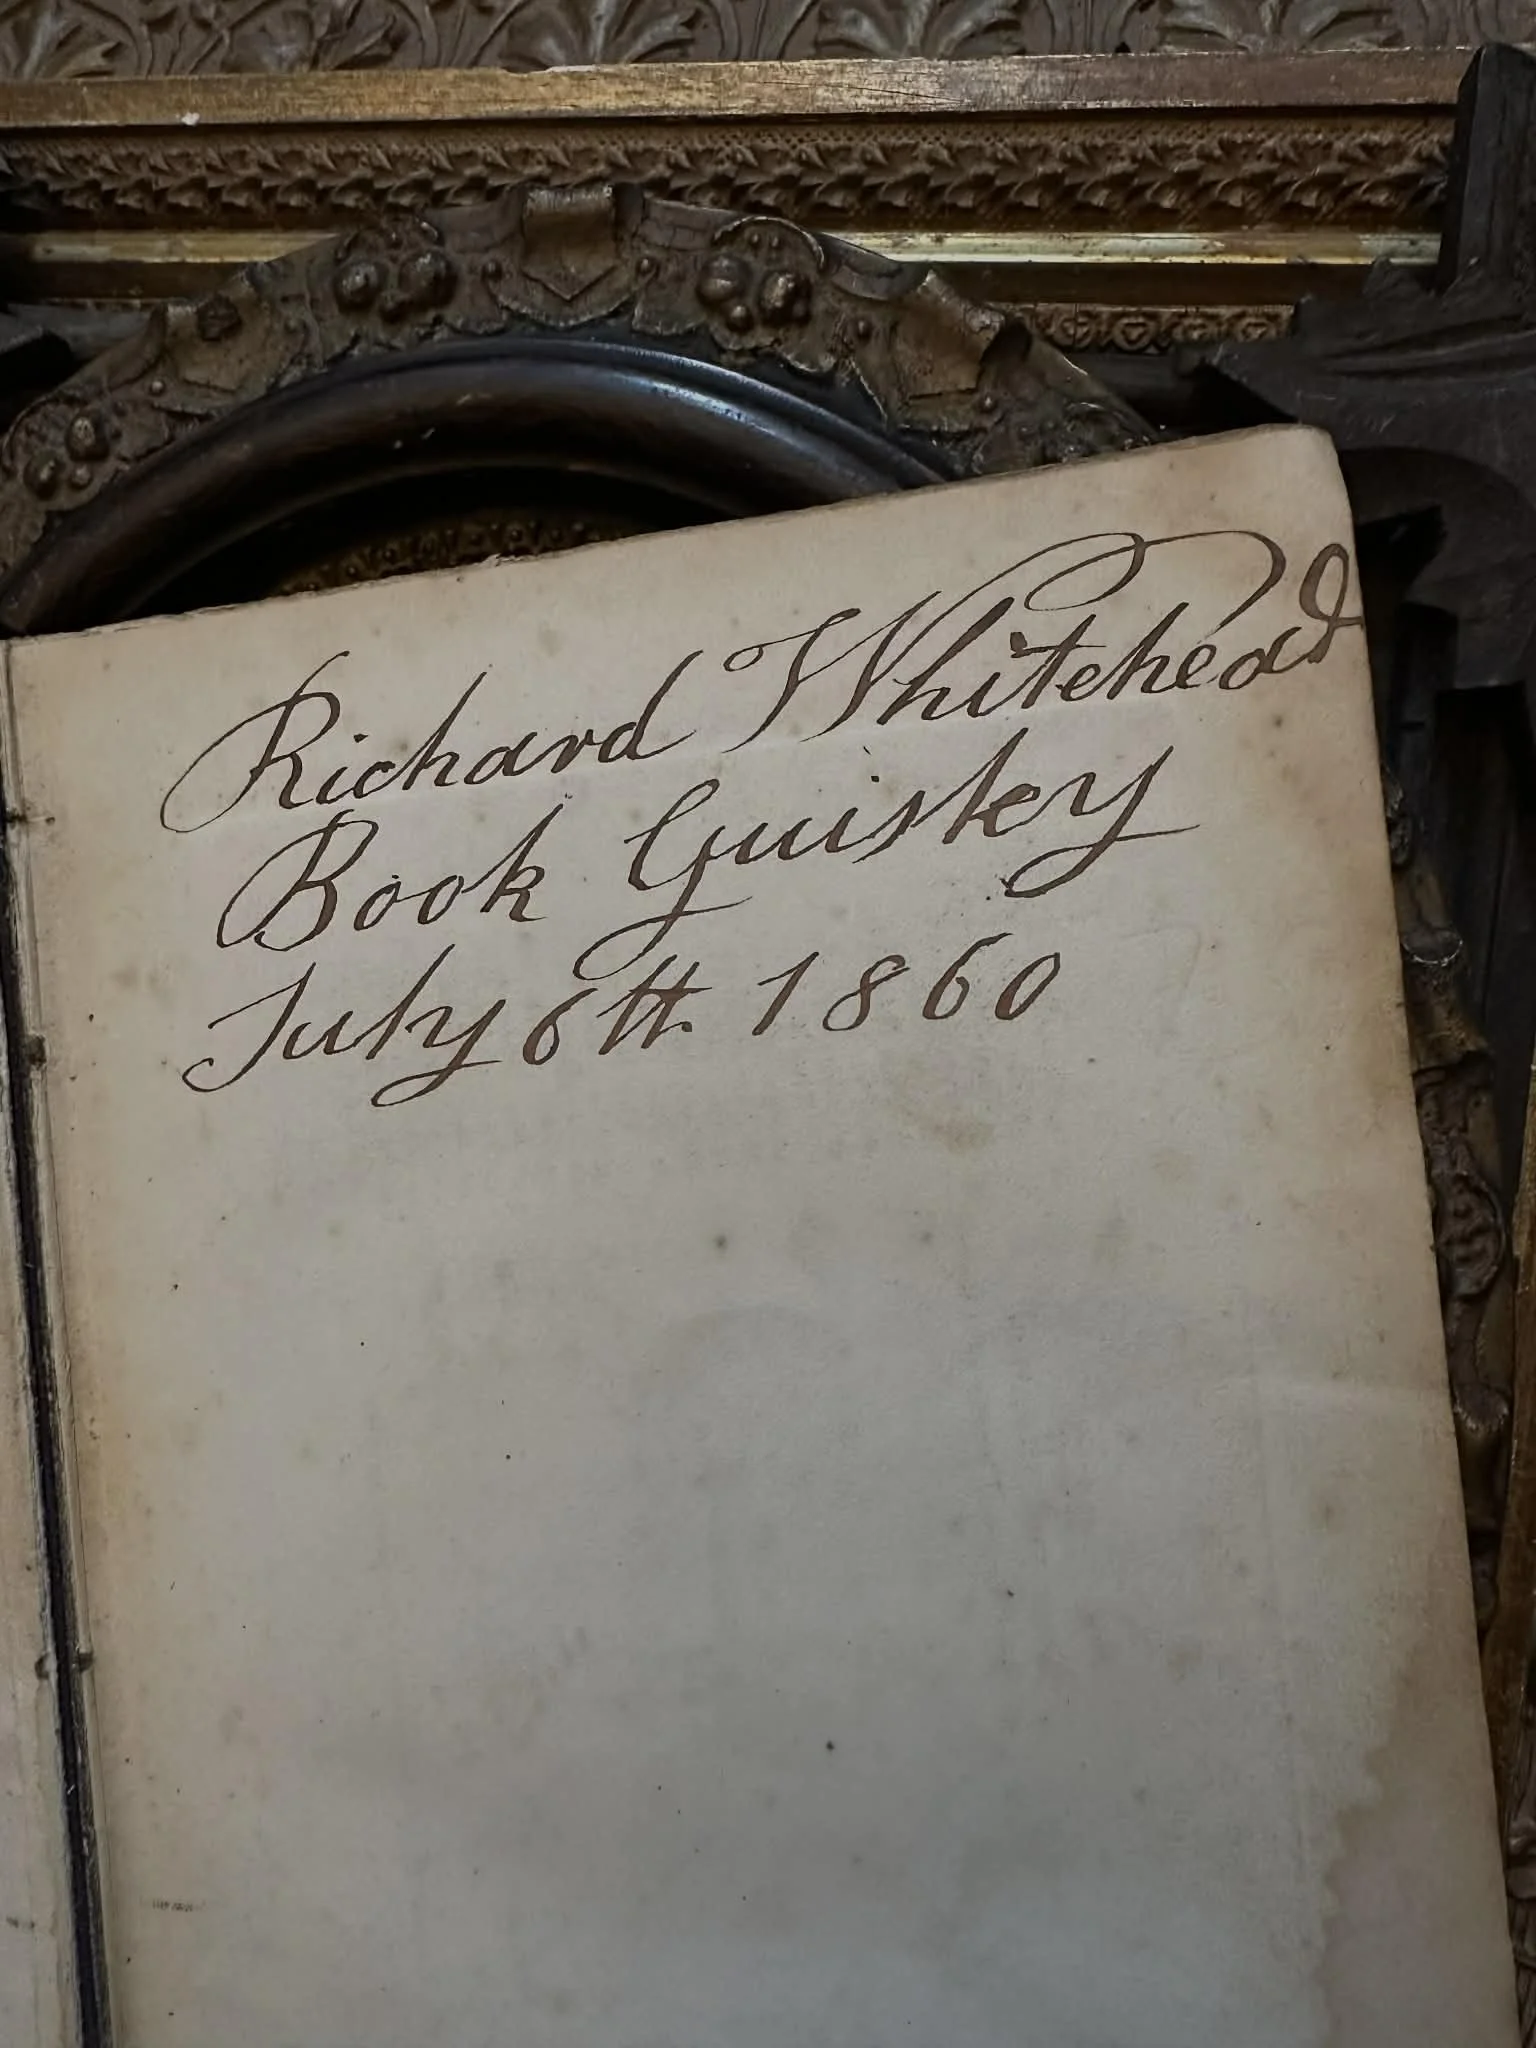 Richard Whitehead
Book Guisley
July 6th 1860